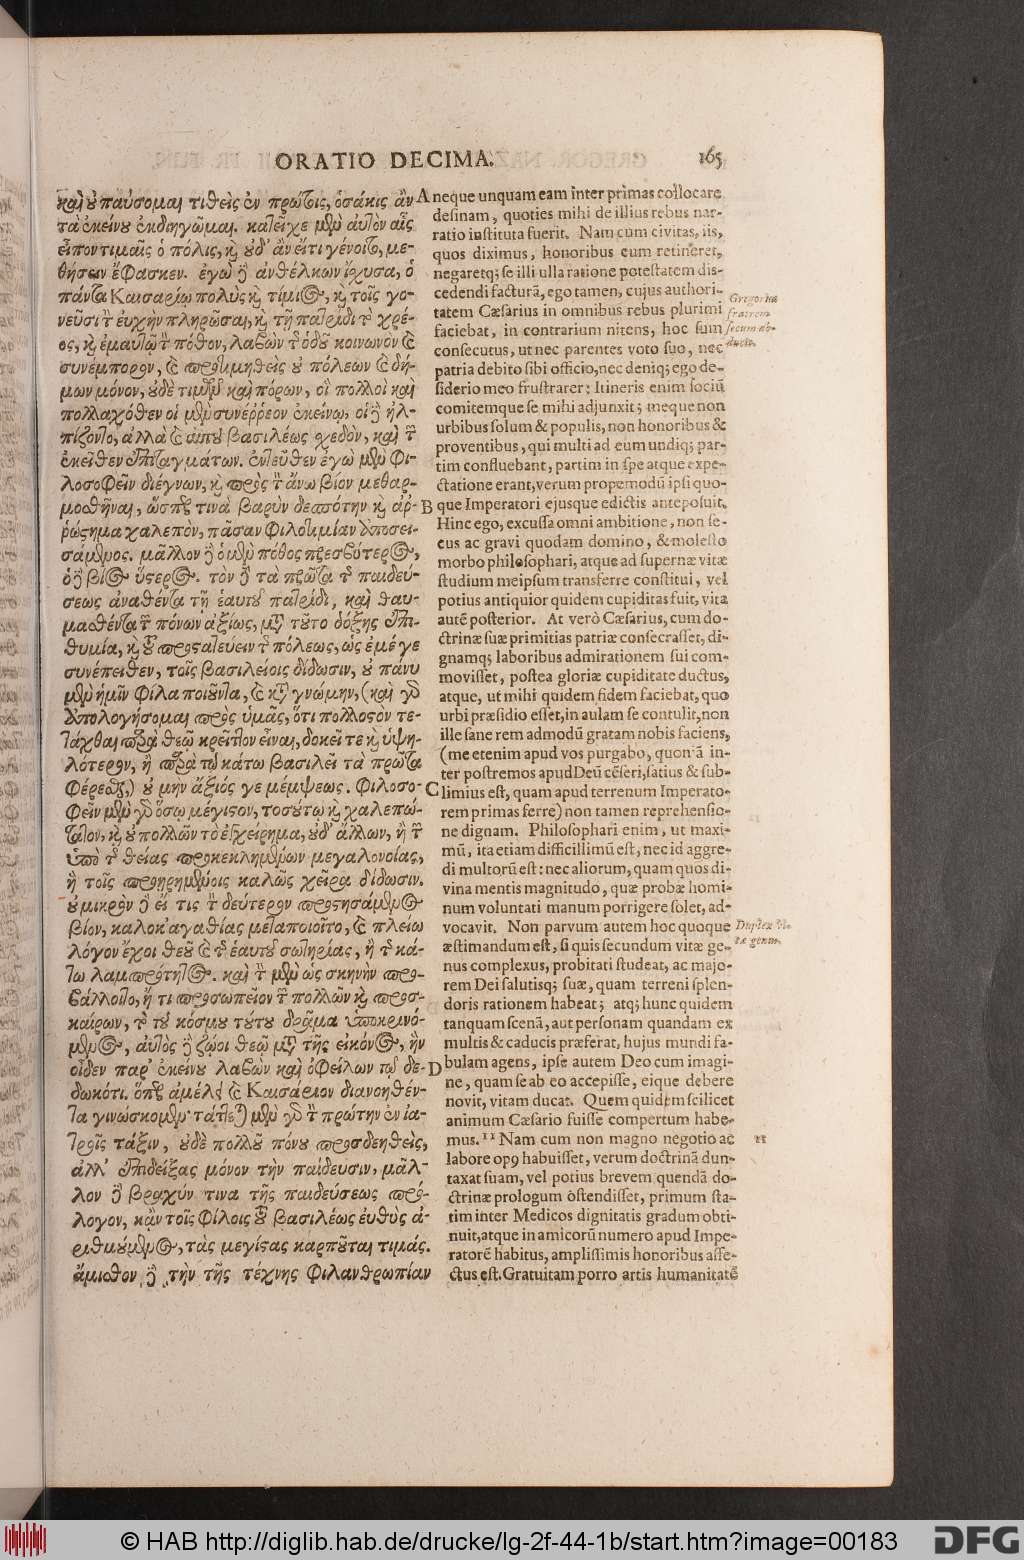 ORATIO DECIMA.
165
καὶ οὐ παύσομαι τιθεὶς ἐν πρώτοις, ὁσάκις ἂν
τὰ ἐκείνου ἐκδιηγῶμαι. κατεῖχε μὲν αὐτὸν αἷς
εἶπον τιμαῖς ὁ πόλις, καὶ οὐδ' ἂν εἴ τι γένοιτο, με-
θήσειν ἔφασκεν. ἐγὼ δὲ ἀνθέλκων ἴσχυσα, ὁ
πάντα Καισαρίῳ πολὺς καὶ τίμιος, καὶ τοῖς γο-
νεῦσι τὴν εὐχὴν πληρῶσαι, καὶ τῇ πατρίδι τὸ χρέ-
ος, καὶ ἐμαυτῷ τὸν πόθον, λαβὼν τῆς ὁδοῦ κοινωνὸν καὶ
συνέμπορον, καὶ προτιμηθεὶς οὐ πόλεων καὶ δή-
μων μόνον, οὐδὲ τιμῶν καὶ πόρων, οἳ πολλοὶ καὶ
πολλαχόθεν οἱ μὲν συνέῤῥεον ἐκείνῳ, οἱ δὲ ἠλ-
πίζοντο, ἀλλὰ καὶ αὐτοῦ βασιλέως σχεδὸν, καὶ τῶν
ἐκεῖθεν ἐπιταγμάτων. ἐντεῦθεν ἐγὼ μὲν φι-
λοσοφεῖν διέγνων, καὶ πρὸς τὸν ἄνω βίον μεθαρ-
μοσθῆναι, ὥσπερ τινὰ βαρὺν δεσπότην καὶ ἀῤ-
ῥώστημα χαλεπὸν, πᾶσαν φιλοτιμίαν ἀποσει-
σάμενος. μᾶλλον δὲ ὁ μὲν πόθος πρεσβύτερος,
ὁ δὲ βίος ὕστερος. τὸν δὲ τὰ πρῶτα τῆς παιδεύ-
σεως ἀναθέντα τῇ ἑαυτοῦ πατρίδι, καὶ θαυ-
μασθέντα τῶν πόνων ἀξίως, μετὰ τοῦτο δόξης ἐπι-
θυμία, καὶ τοῦ προστατεύειν τῆς πόλεως, ὡς ἐμέ γε
συνέπειθεν, τοῖς βασιλείοις δίδωσιν, οὐ πάνυ
μὲν ἡμῖν φίλα ποιοῦντα, καὶ κατὰ γνώμην, (καὶ γὰρ
ἀπολογήσομαι πρὸς ὑμᾶς, ὅτι πολλοστὸν τε-
τάχθαι παρὰ θεῷ κρεῖττον εἶναι, δοκεῖ τε καὶ ὑψη-
λότερον, ἢ παρὰ τῷ κάτω βασιλεῖ τὰ πρῶτα
φέρεσθαι,) οὐ μὴν ἄξιός γε μέμψεως. φιλοσο-
φεῖν μὲν γὰρ ὅσῳ μέγιστον, τοσούτῳ καὶ χαλεπώ-
τατον, καὶ οὐ πολλῶν τὸ ἐγχείρημα, οὐδ' ἄλλων, ἢ τῶν
ὑπὸ τῆς θείας προκεκλημένων μεγαλονοίας,
ἢ τοῖς προῃρημένοις καλῶς χεῖρα δίδωσιν.
οὐ μικρὸν δὲ εἴ τις τὸν δεύτερον προστησάμενος
βίον, καλοκἀγαθίας μεταποιοῖτο, καὶ πλείω
λόγον ἔχοι θεοῦ καὶ τῆς ἑαυτοῦ σωτηρίας, ἢ τῆς κά-
τω λαμπρότητος. καὶ τὴν μὲν ὡς σκηνὴν προ-
βάλλοιτο, ἤ τι προσωπεῖον τῶν πολλῶν καὶ προσ-
καίρων, τὸ τοῦ κόσμου τούτου δρᾶμα ὑποκρινό-
μενος, αὐτὸς δὲ ζώοι θεῷ μετὰ τῆς εἰκόνος, ἣν
οἶδεν παρ' ἐκείνου λαβὼν καὶ ὀφείλων τῷ δε-
δωκότι. ὅπερ ἀμέλει καὶ Καισάριον διανοηθέν-
τα γινώσκομεν· τάττεται μὲν γὰρ τὴν πρώτην ἐν ἰα-
τροῖς τάξιν, οὐδὲ πολλοῦ πόνου προσδεηθεὶς,
ἀλλ' ἐπιδείξας μόνον τὴν παίδευσιν, μᾶλ-
λον δὲ βραχύν τινα τῆς παιδεύσεως πρό-
λογον, κἂν τοῖς φίλοις τοῦ βασιλέως εὐθὺς ἀ-
ριθμούμενος, τὰς μεγίστας καρποῦται τιμάς.
ἄμισθον δὲ τὴν τῆς τέχνης φιλανθρωπίαν
A
B
C
D
neque unquam eam inter primas collocare
desinam, quoties mihi de illius rebus nar-
ratio instituta fuerit. Nam cum civitas, iis,
quos diximus, honoribus eum retineret,
negaretq; se illi ulla ratione potestatem dis-
cedendi facturã, ego tamen, cujus authori-
tatem Cæsarius in omnibus rebus plurimi
faciebat, in contrarium nitens, hoc sum
consecutus, ut nec parentes voto suo, nec
patria debito sibi officio, nec deniq; ego de-
siderio meo frustrarer: Itineris enim sociũ
comitemque se mihi adjunxit; meque non
urbibus solum & populis, non honoribus &
proventibus, qui multi ad eum undiq; par-
tim confluebant, partim in spe atque expe-
ctatione erant, verum propemodũ ipsi quo-
que Imperatori ejusque edictis anteposuit.
Hinc ego, excussa omni ambitione, non se-
cus ac gravi quodam domino, & molesto
morbo philosophari, atque ad supernæ vitæ
studium meipsum transferre constitui, vel
potius antiquior quidem cupiditas fuit, vita
autẽ posterior. At verò Cæsarius, cum do-
ctrinæ suæ primitias patriæ consecrasset, di-
gnamq; laboribus admirationem sui com-
movisset, postea gloriæ cupiditate ductus,
atque, ut mihi quidem fidem faciebat, quo
urbi præsidio esset, in aulam se contulit, non
ille sane rem admodũ gratam nobis faciens,
(me etenim apud vos purgabo, quoniã in-
ter postremos apud Deũ cẽseri, satius & sub-
limius est, quam apud terrenum Imperato-
rem primas ferre) non tamen reprehensio-
ne dignam. Philosophari enim, ut maxi-
mũ, ita etiam difficillimũ est, nec id aggre-
di multorũ est: nec aliorum, quam quos di-
vina mentis magnitudo, quæ probæ homi-
num voluntati manum porrigere solet, ad-
vocavit. Non parvum autem hoc quoque
æstimandum est, si quis secundum vitæ ge-
nus complexus, probitati studeat, ac majo-
rem Dei salutisq; suæ, quam terreni splen-
doris rationem habeat; atq; hunc quidem
tanquam scenã, aut personam quandam ex
multis & caducis præferat, hujus mundi fa-
bulam agens, ipse autem Deo cum imagi-
ne, quam se ab eo accepisse, eique debere
novit, vitam ducat. Quem quidem scilicet
animum Cæsario fuisse compertum habe-
mus. 11 Nam cum non magno negotio ac
labore opꝰ habuisset, verum doctrinã dun-
taxat suam, vel potius brevem quendã do-
ctrinæ prologum ostendisset, primum sta-
tim inter Medicos dignitatis gradum obti-
nuit, atque in amicorũ numero apud Impe-
ratorẽ habitus, amplissimis honoribus affe-
ctus est. Gratuitam porro artis humanitatẽ
Gregorius
fratrem
secum ab-
ducit.
Duplex vi-
tæ genus.
11
© HAB http://diglib.hab.de/drucke/lg-2f-44-1b/start.htm?image=00183
DFG